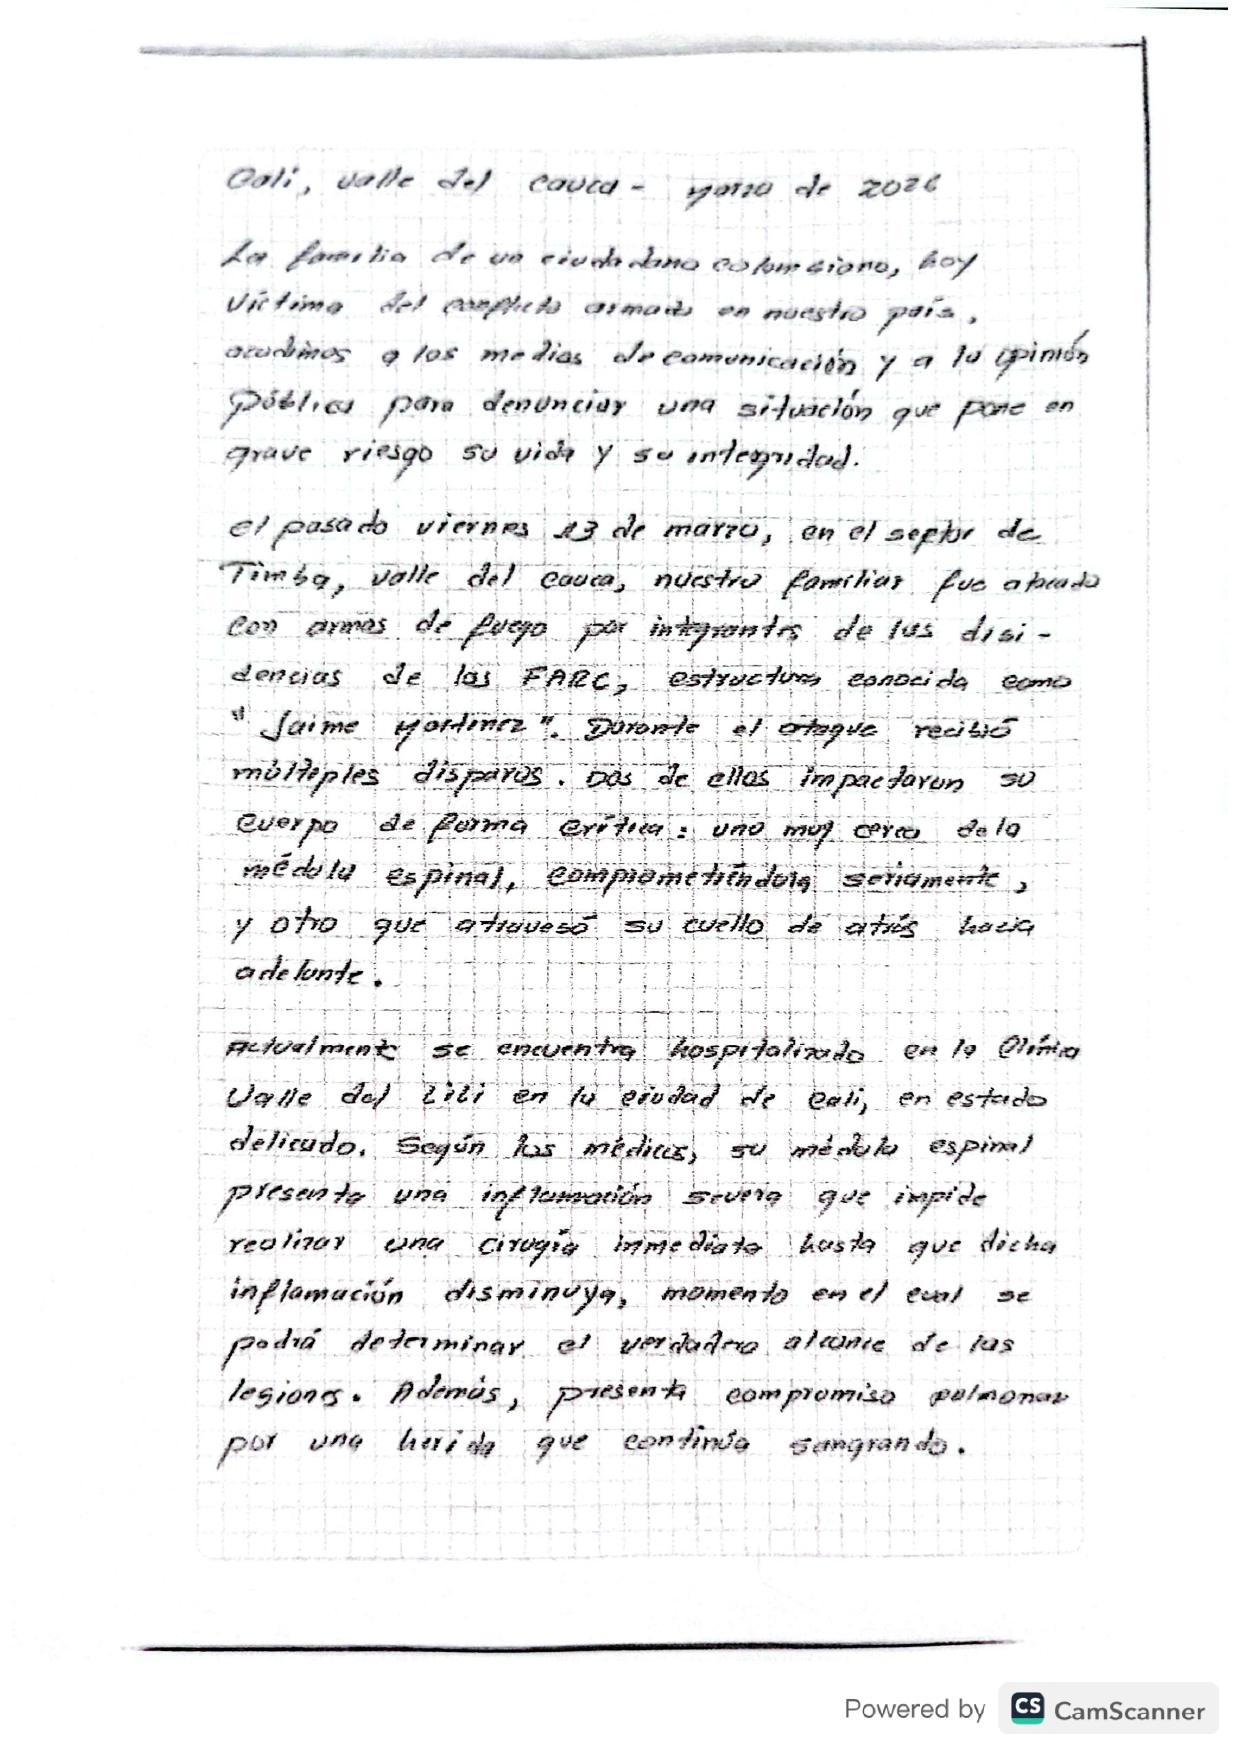 Cali, valle del cauca - marzo de 2026
La familia de un ciudadano colombiano, hoy
víctima del conflicto armado en nuestro país,
acudimos a los medios de comunicación y a la opinión
Pública para denunciar una situación que pone en
grave riesgo su vida y su integridad.
el pasado viernes 13 de marzo, en el sector de
Timba, valle del cauca, nuestro familiar fue atacado
con armas de fuego por integrantes de las disi-
dencias de las FARC, estructura conocida como
"Jaime Martínez". Durante el ataque recibió
múltiples disparos. Dos de ellos impactaron su
cuerpo de forma crítica: uno muy cerca de la
médula espinal, comprometiéndola seriamente,
y otro que atravesó su cuello de atrás hacia
adelante.
Actualmente se encuentra hospitalizado en la Clínica
Valle del Lili en la ciudad de Cali, en estado
delicado. Según los médicos, su médula espinal
presenta una inflamación severa que impide
realizar una cirugía inmediata hasta que dicha
inflamación disminuya, momento en el cual se
podrá determinar el verdadero alcance de las
legiones. Además, presenta compromiso pulmonar
por una herida que continúa sangrando.
Powered by CS CamScanner